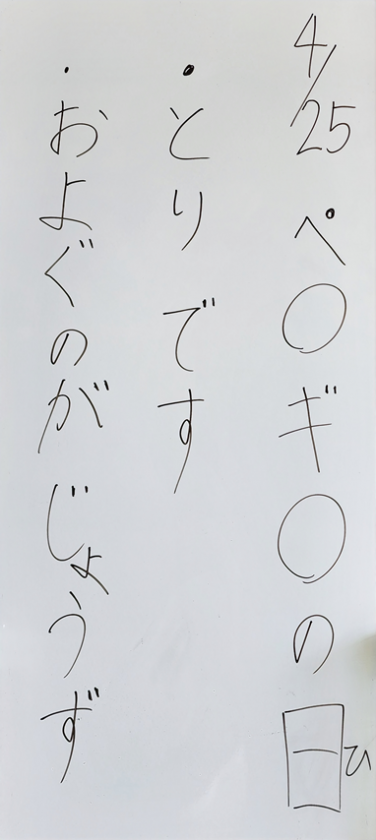 4/25 ペ○ギ○の日ひ
・とりです
・およぐのがじょうず